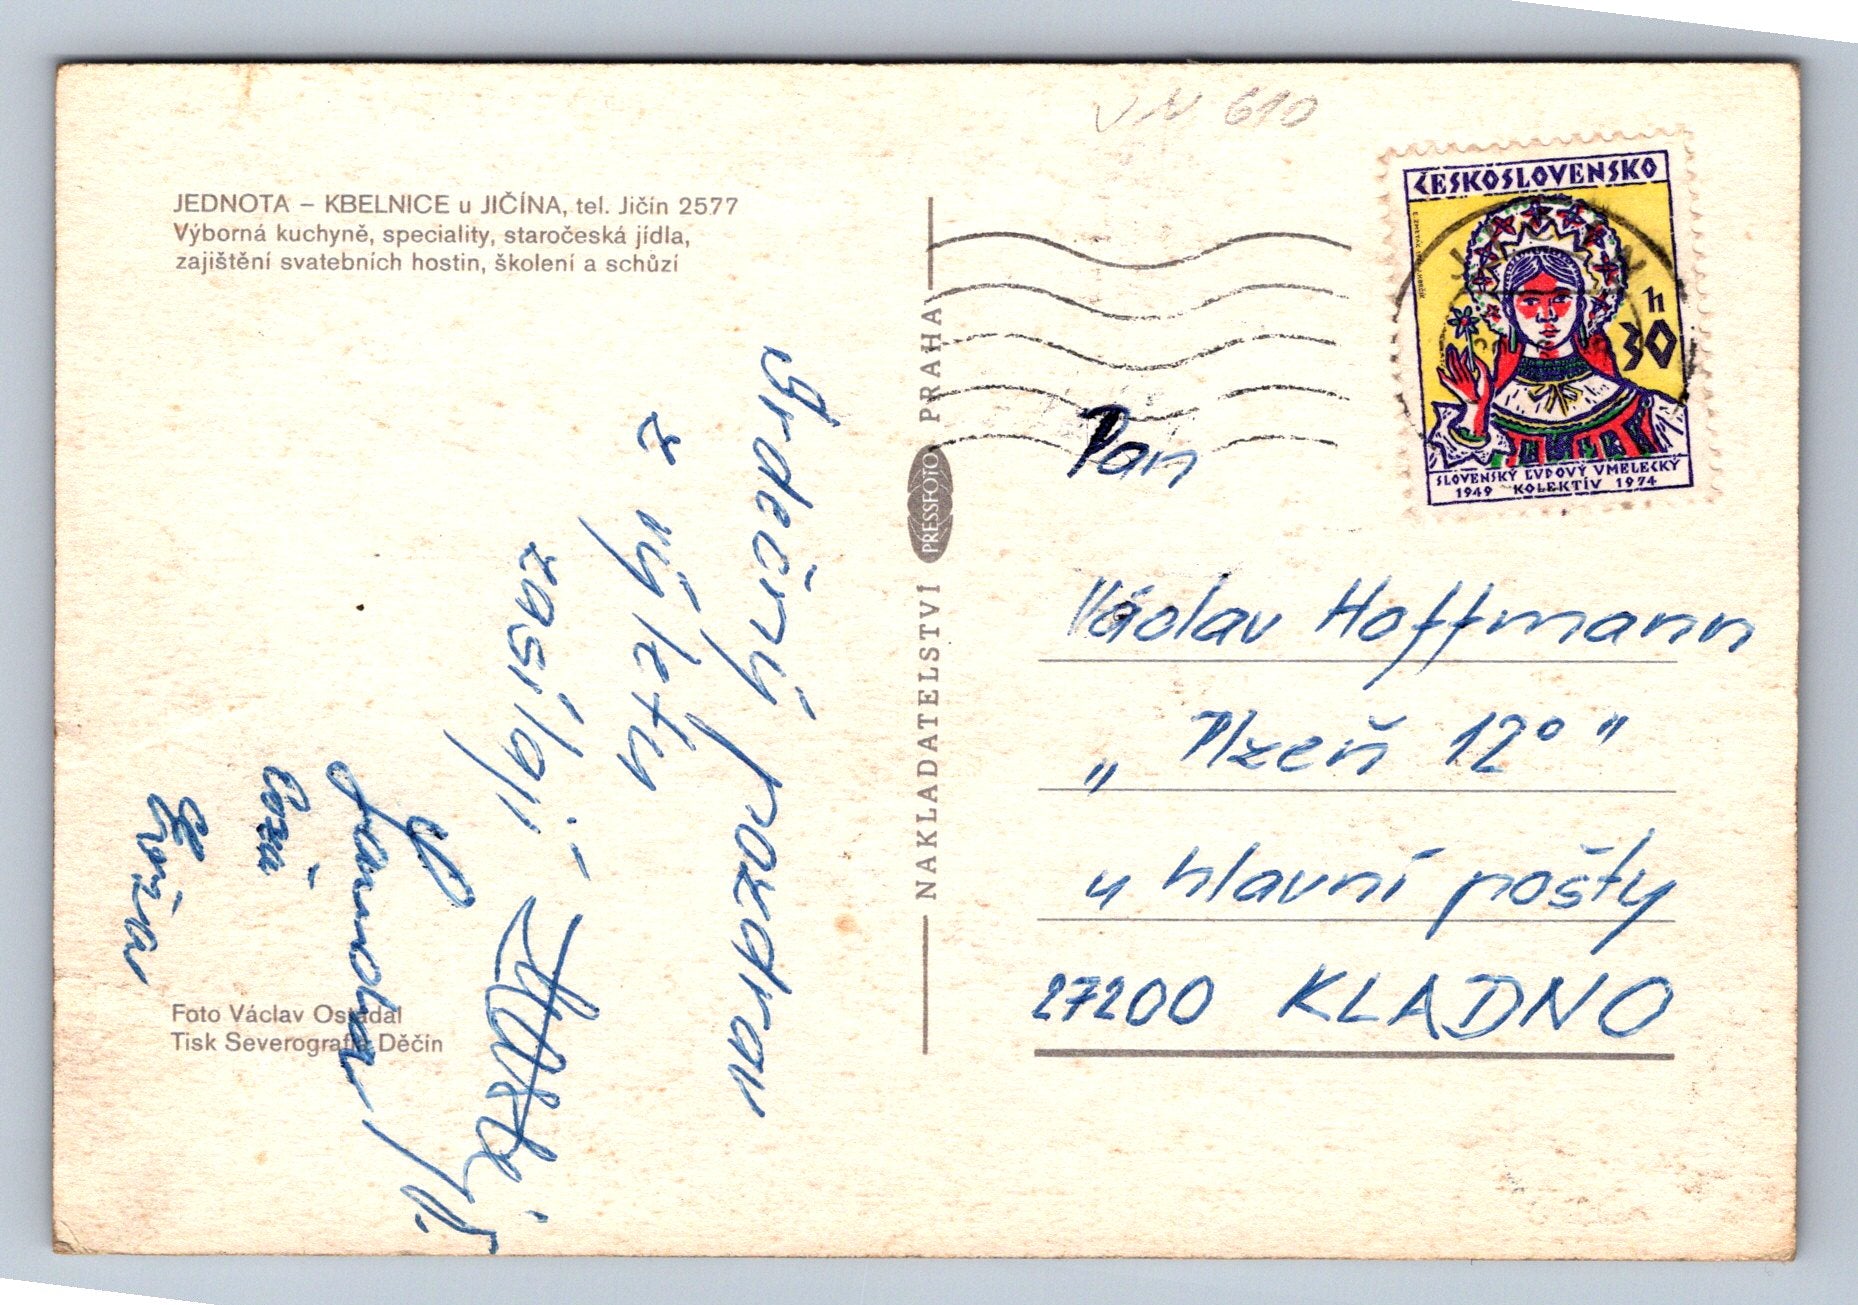 VN 610
JEDNOTA – KBELNICE u JIČÍNA, tel. Jičín 2577
Výborná kuchyně, speciality, staročeská jídla,
zajištění svatebních hostin, školení a schůzí
Srdečný pozdrav
z výletu
zasílají
Foto Václav Ostadal
Tisk Severografia Děčín
NAKLADATELSTVÍ PRESSFOTO PRAHA
ČESKOSLOVENSKO
30 h
SLOVENSKÝ ĽUDOVÝ UMELECKÝ
1949 KOLEKTÍV 1974
Pan
Václav Hoffmann
„Plzeň 12°"
u hlavní pošty
27200 KLADNO